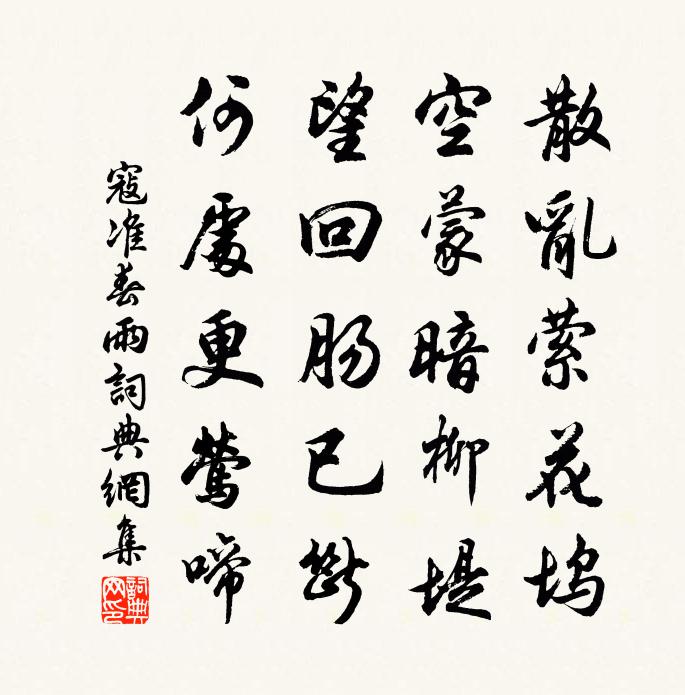 散亂萦花坞
空蒙暗柳堤
望回肠已斷
何處更莺啼
寇准春雨詞典網集
詞典网印